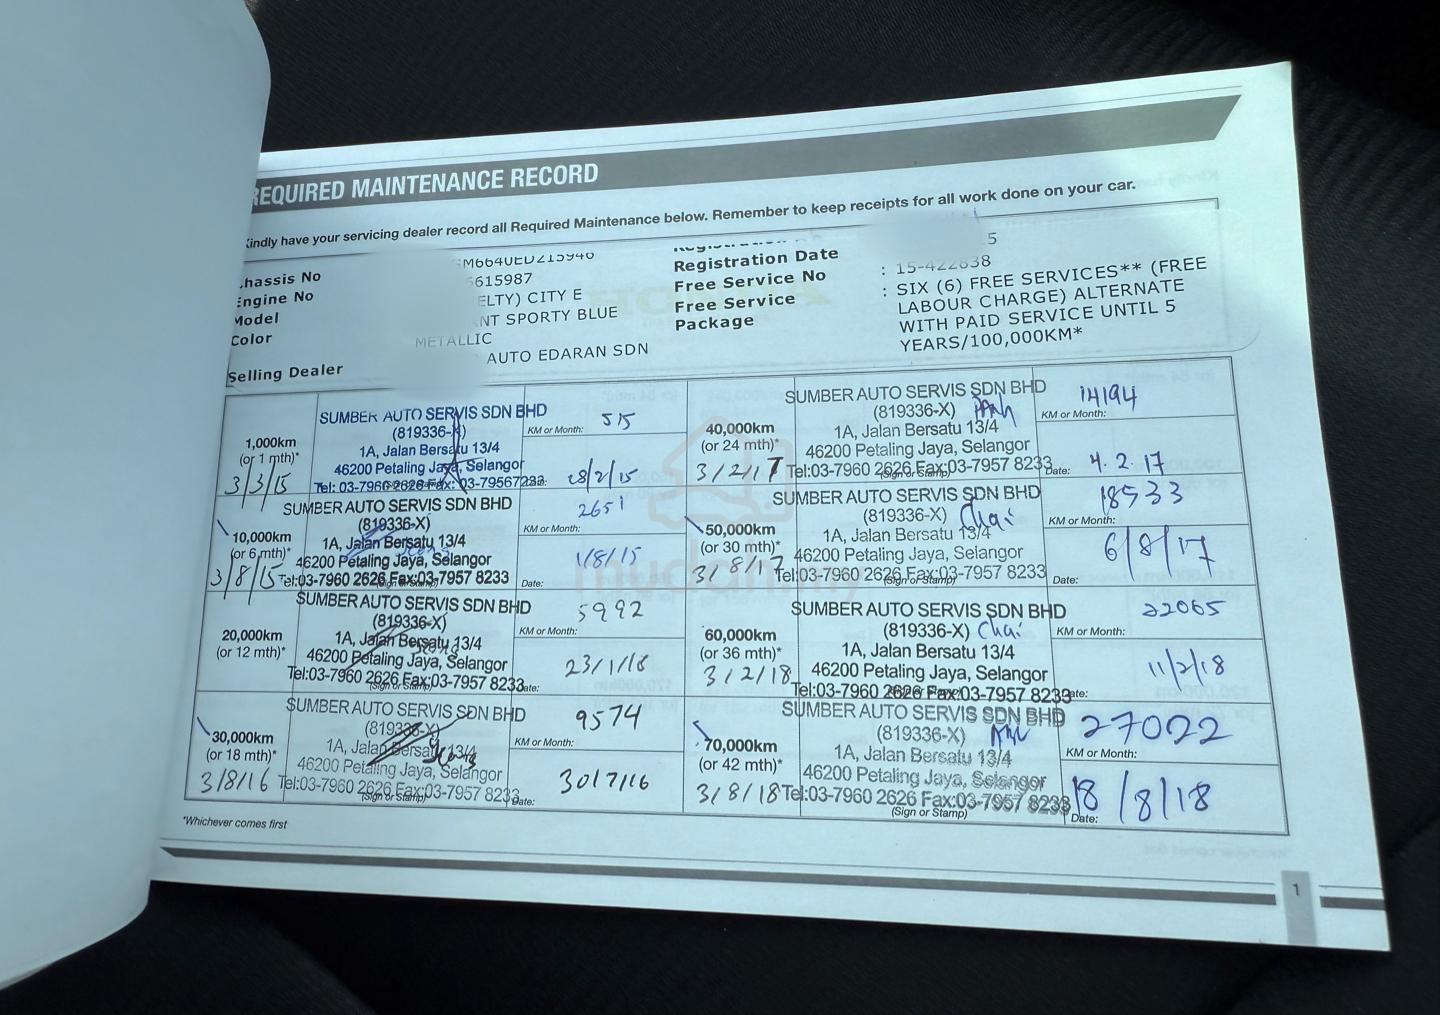 REQUIRED MAINTENANCE RECORD
Kindly have your servicing dealer record all Required Maintenance below. Remember to keep receipts for all work done on your car.
Chassis No
Engine No 615987
Model ELTY) CITY E
Color NT SPORTY BLUE
METALLIC
Selling Dealer AUTO EDARAN SDN
Registration Date 5
Free Service No : 15-422838
Free Service : SIX (6) FREE SERVICES** (FREE
Package LABOUR CHARGE) ALTERNATE
WITH PAID SERVICE UNTIL 5
YEARS/100,000KM*
1,000km
(or 1 mth)*
3/3/15
SUMBER AUTO SERVIS SDN BHD
(819336-X)
1A, Jalan Bersatu 13/4
46200 Petaling Jaya, Selangor
Tel: 03-7960 2626 Fax: 03-79567233
515
KM or Month:
Date: 28/2/15
10,000km
(or 6 mth)*
3/8/15
SUMBER AUTO SERVIS SDN BHD
(819336-X)
1A, Jalan Bersatu 13/4
46200 Petaling Jaya, Selangor
Tel:03-7960 2626 Fax:03-7957 8233
(Sign or Stamp)
2651
KM or Month:
1/8/15
Date:
20,000km
(or 12 mth)*
SUMBER AUTO SERVIS SDN BHD
(819336-X)
1A, Jalan Bersatu 13/4
46200 Petaling Jaya, Selangor
Tel:03-7960 2626 Fax:03-7957 8233
(Sign or Stamp)
5992
KM or Month:
23/1/16
Date:
30,000km
(or 18 mth)*
3/8/16
SUMBER AUTO SERVIS SDN BHD
(819336-X)
1A, Jalan Bersatu 13/4
46200 Petaling Jaya, Selangor
Tel:03-7960 2626 Fax:03-7957 8233
(Sign or Stamp)
9574
KM or Month:
30/7/16
Date:
40,000km
(or 24 mth)*
3/2/17
SUMBER AUTO SERVIS SDN BHD
(819336-X)
1A, Jalan Bersatu 13/4
46200 Petaling Jaya, Selangor
Tel:03-7960 2626 Fax:03-7957 8233
(Sign or Stamp)
14194
KM or Month:
Date: 4.2.17
50,000km
(or 30 mth)*
3/8/17
SUMBER AUTO SERVIS SDN BHD
(819336-X) Chai
1A, Jalan Bersatu 13/4
46200 Petaling Jaya, Selangor
Tel:03-7960 2626 Fax:03-7957 8233
(Sign or Stamp)
18533
KM or Month:
6/8/17
Date:
60,000km
(or 36 mth)*
3/2/18
SUMBER AUTO SERVIS SDN BHD
(819336-X) Chai
1A, Jalan Bersatu 13/4
46200 Petaling Jaya, Selangor
Tel:03-7960 2626 Fax:03-7957 8233
22065
KM or Month:
11/2/18
Date:
70,000km
(or 42 mth)*
3/8/18
SUMBER AUTO SERVIS SDN BHD
(819336-X)
1A, Jalan Bersatu 13/4
46200 Petaling Jaya, Selangor
Tel:03-7960 2626 Fax:03-7957 8233
(Sign or Stamp)
27022
KM or Month:
18/8/18
Date:
*Whichever comes first
1
mudah.my